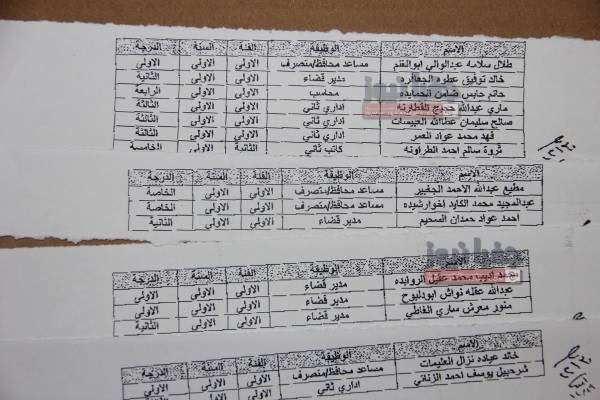 الاسم الوظيفة الفئة السنة الدرجة
طلال سلامه عبدالوالي ابوالغنم مساعد محافظ/متصرف الاولى الاولى الاولى
خالد توفيق عطوه الجعافره مدير قضاء الاولى الاولى الثانية
حاتم حابس ضامن الحمايده محاسب الاولى الاولى الرابعة
ماري عبدالله جريج القطارنه اداري ثاني الاولى الاولى الثالثة
صالح سليمان عطاالله العبيسات اداري ثاني الاولى الاولى الثالثة
فهد محمد عواد العمر اداري ثاني الاولى الاولى الثالثة
ثروة سالم احمد الطراونه كاتب ثاني الثانية الاولى الخامسة
الاسم الوظيفة الفئة السنة الدرجة
مطيع عبدالله الاحمد الجغبير مساعد محافظ/متصرف الاولى الاولى الخاصة
عبدالمجيد محمد الكايد اخوارشيده مساعد محافظ/متصرف الاولى الاولى الخاصة
احمد عواد حمدان السحيم مدير قضاء الاولى الاولى الثانية
جفرا نيوز
الاسم الوظيفة الفئة السنة الدرجة
محمد اديب محمد عقيل الروابده مدير قضاء الاولى الاولى الاولى
عبدالله عقله نواش ابودلبوح مدير قضاء الاولى الاولى الاولى
منور معرش ساري الغاطي مدير قضاء الاولى الاولى الثانية
الاسم الوظيفة الفئة السنة الدرجة
خالد عياده نزال العليمات مساعد محافظ/متصرف الاولى الاولى الاولى
شرحبيل يوسف احمد الزناتي اداري ثاني الاولى الاولى